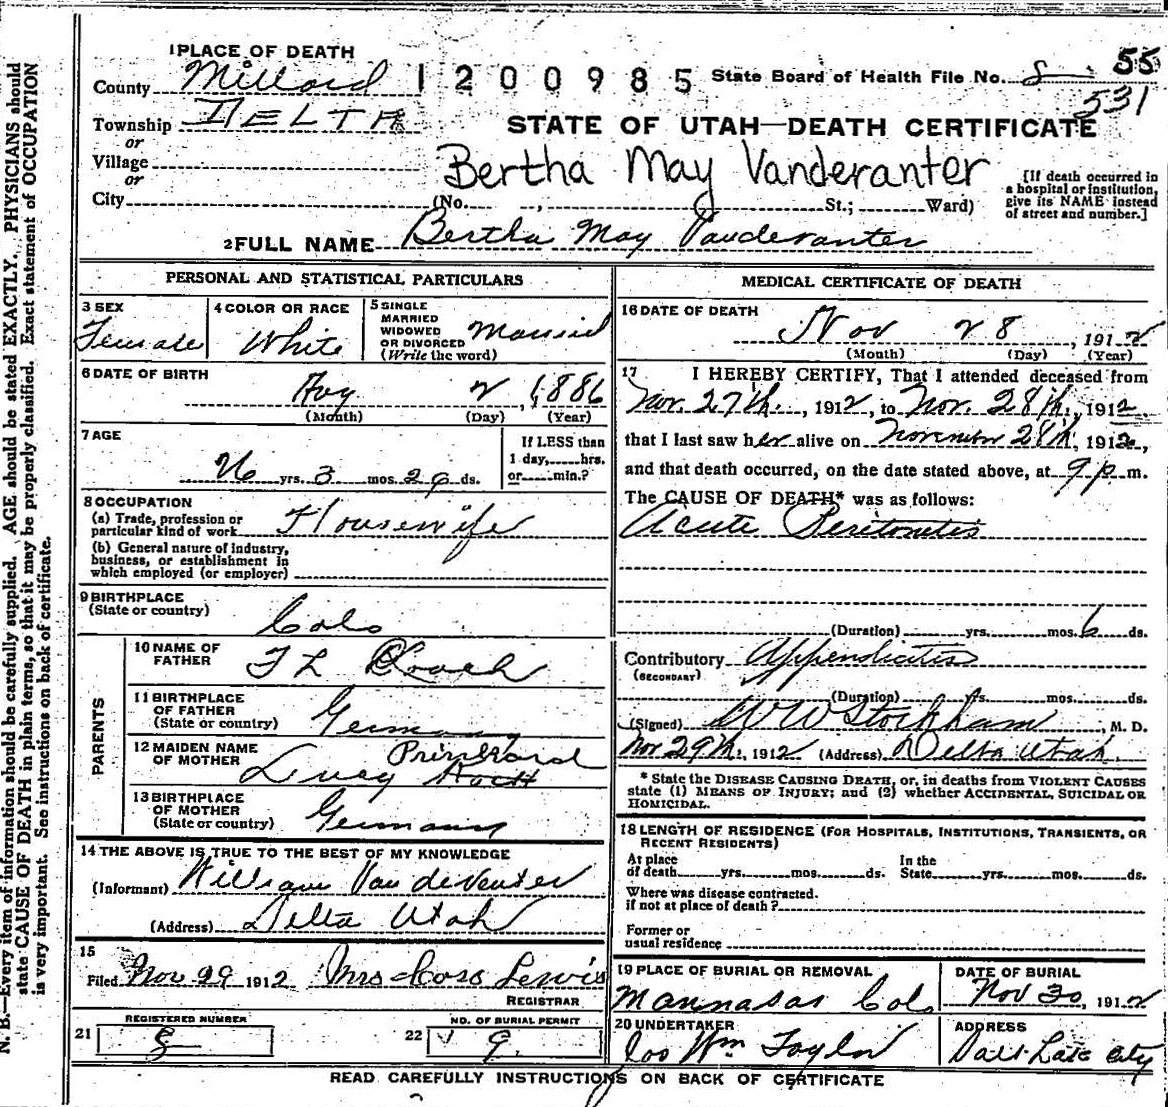 1 PLACE OF DEATH
County Millard 1200985 State Board of Health File No. 8 55
531
Township DELTA
or
Village
or
City
STATE OF UTAH—DEATH CERTIFICATE
Bertha May Vanderanter
(No. , St.; Ward)
[If death occurred in a hospital or institution, give its NAME instead of street and number.]
2 FULL NAME Bertha May Vanderanter
PERSONAL AND STATISTICAL PARTICULARS
3 SEX
Female
4 COLOR OR RACE
White
5 SINGLE
MARRIED
WIDOWED
OR DIVORCED
(Write the word)
Married
6 DATE OF BIRTH
Aug 2, 1886
(Month) (Day) (Year)
7 AGE
26 yrs. 3 mos. 29 ds.
If LESS than
1 day, hrs.
or min.?
8 OCCUPATION
(a) Trade, profession or
particular kind of work Housewife
(b) General nature of industry,
business, or establishment in
which employed (or employer)
9 BIRTHPLACE
(State or country)
Colo
PARENTS
10 NAME OF
FATHER
F L
11 BIRTHPLACE
OF FATHER
(State or country)
Germany
12 MAIDEN NAME
OF MOTHER
Lucy
13 BIRTHPLACE
OF MOTHER
(State or country)
Germany
14 THE ABOVE IS TRUE TO THE BEST OF MY KNOWLEDGE
(Informant) William Vandeventer
(Address) Delta Utah
15
Filed Nov 29 1912 Mrs Lewis
REGISTRAR
REGISTERED NUMBER
21 8
NO. OF BURIAL PERMIT
22 9
MEDICAL CERTIFICATE OF DEATH
16 DATE OF DEATH
Nov 28, 1912
(Month) (Day) (Year)
17 I HEREBY CERTIFY, That I attended deceased from
Nov. 27th, 1912, to Nov. 28th, 1912
that I last saw her alive on November 28th, 1912,
and that death occurred, on the date stated above, at 9 p m.
The CAUSE OF DEATH* was as follows:
Acute Peritonitis
(Duration) yrs. mos. 6 ds.
Contributory Appendicitis
(SECONDARY)
(Duration) yrs. mos. ds.
(Signed) W W Stockham, M. D.
Nov 29th, 1912 (Address) Delta Utah.
* State the DISEASE CAUSING DEATH, or, in deaths from VIOLENT CAUSES
state (1) MEANS OF INJURY; and (2) whether ACCIDENTAL, SUICIDAL OR
HOMICIDAL.
18 LENGTH OF RESIDENCE (FOR HOSPITALS, INSTITUTIONS, TRANSIENTS, OR
RECENT RESIDENTS)
At place
of death yrs. mos. ds.
In the
State yrs. mos. ds.
Where was disease contracted.
if not at place of death?
Former or
usual residence
19 PLACE OF BURIAL OR REMOVAL
Mannasas Colo
DATE OF BURIAL
Nov 30, 1912
20 UNDERTAKER
Wm Taylor
ADDRESS
Salt Lake City
READ CAREFULLY INSTRUCTIONS ON BACK OF CERTIFICATE
N. B.—Every item of information should be carefully supplied. AGE should be stated EXACTLY. PHYSICIANS should
state CAUSE OF DEATH in plain terms, so that it may be properly classified. Exact statement of OCCUPATION
is very important. See instructions on back of certificate.